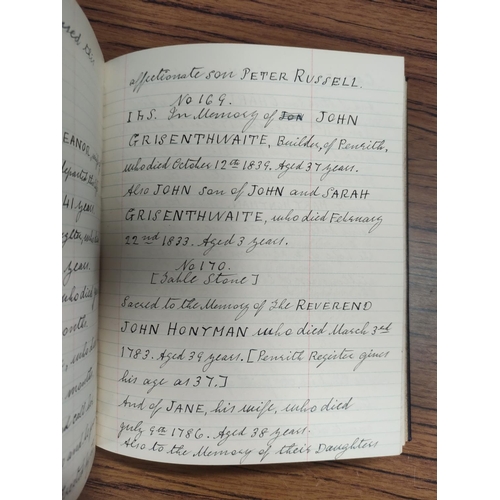 affectionate son PETER RUSSELL.
No 169.
I h S. In Memory of JOHN
GRISENTHWAITE, Builder, of Penrith,
who died October 12th 1839. Aged 37 years.
Also JOHN son of JOHN and SARAH
GRISENTHWAITE, who died February
22nd 1833. Aged 3 years.
No 170.
[Table Stone]
Sacred to the Memory of the REVEREND
JOHN HONYMAN who died March 3rd
1783. Aged 39 years. [Penrith Register gives
his age as 37.]
And of JANE, his wife, who died
July 9th 1786. Aged 38 years.
Also to the Memory of their Daughters